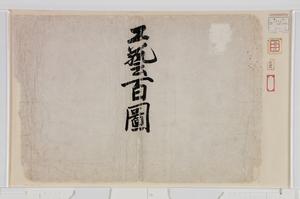 工藝百圖